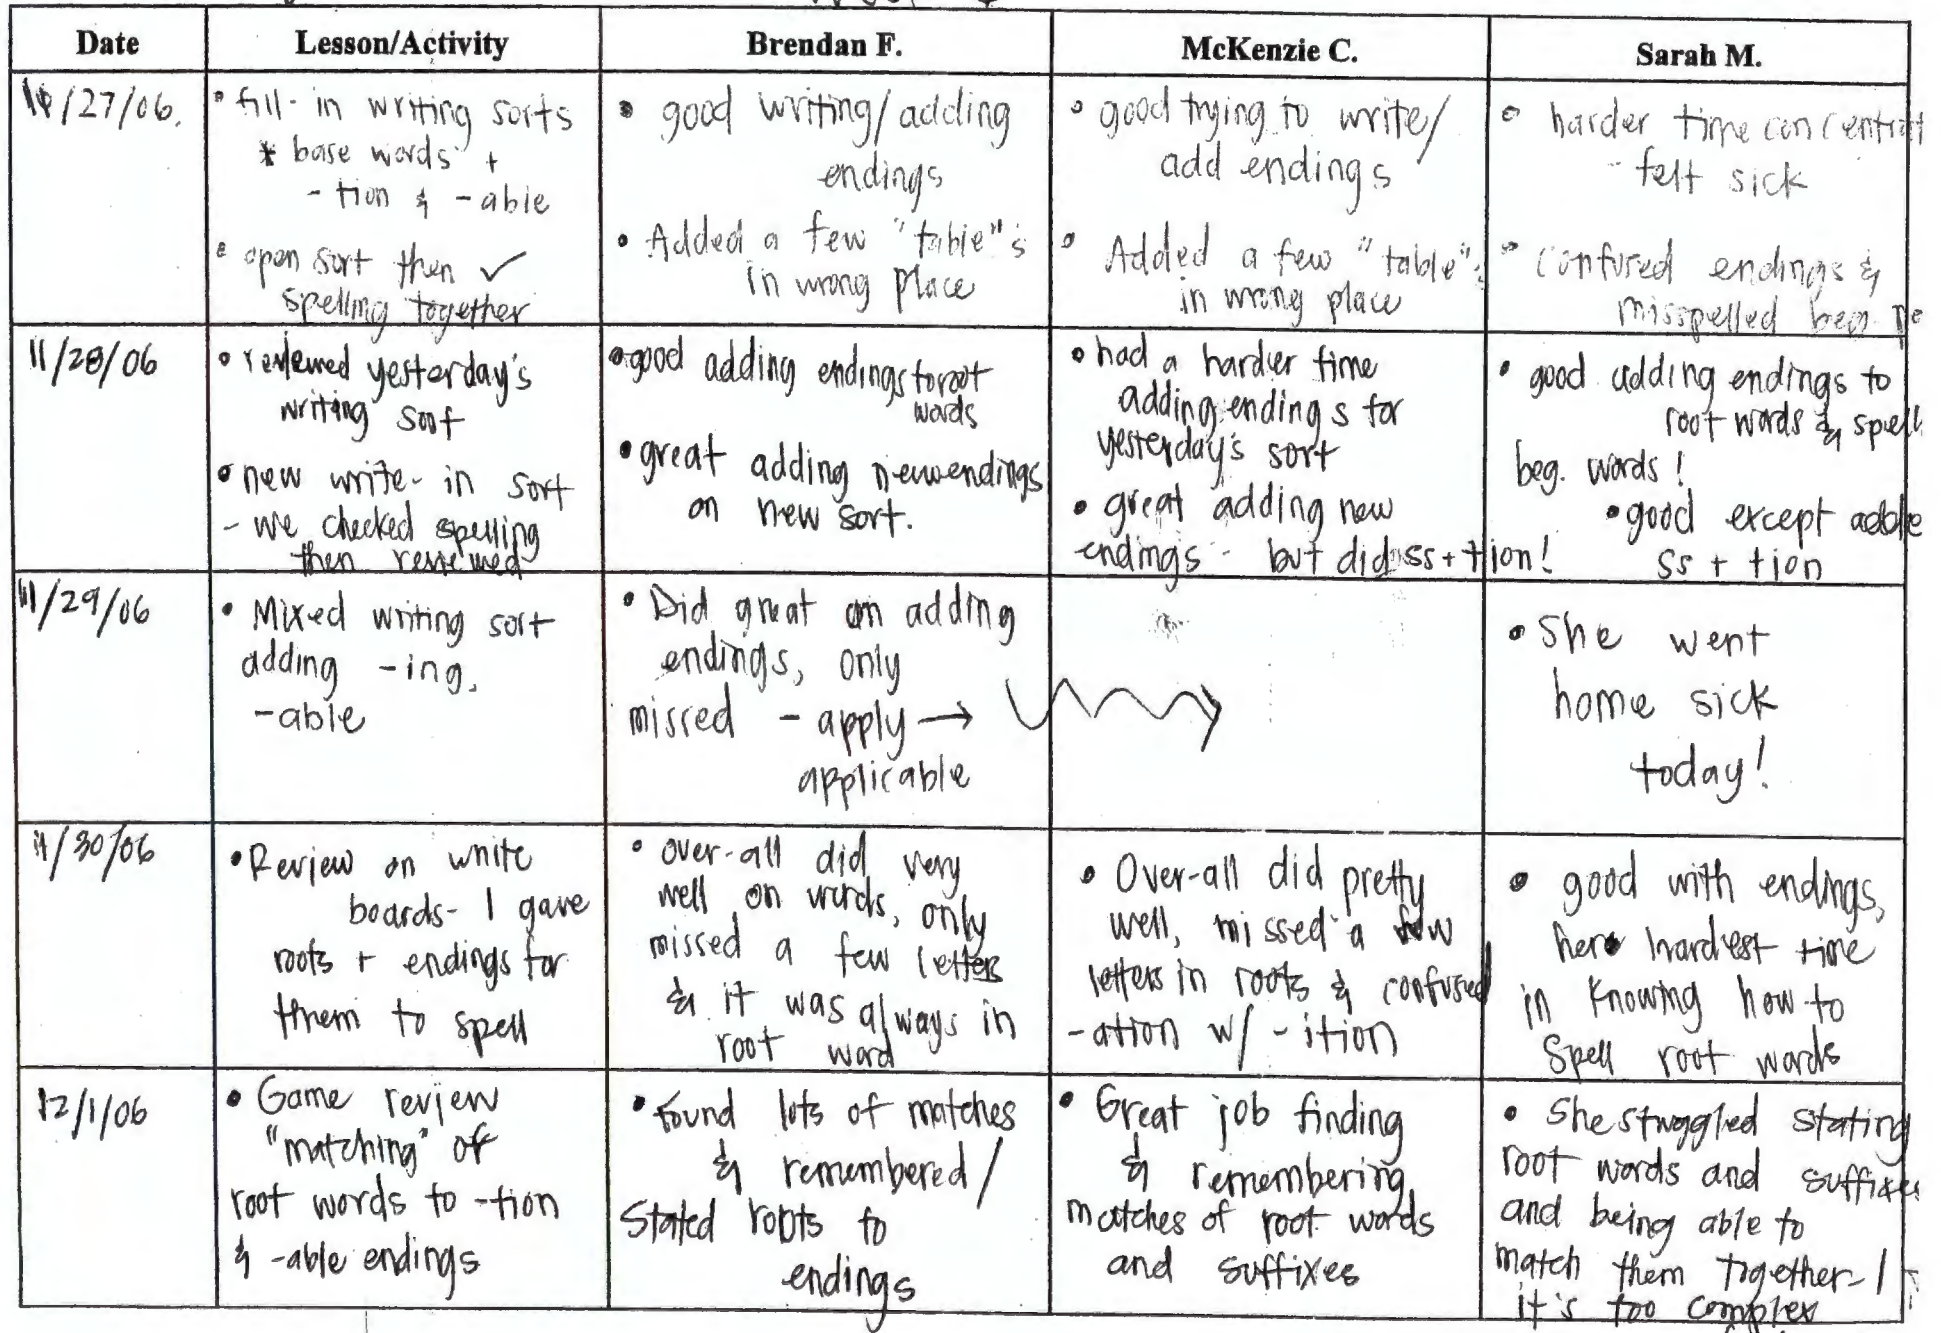 Date
Lesson/Activity
Brendan F.
McKenzie C.
Sarah M.
11/27/06.
• fill-in writing sorts
* base words +
-tion & -able
• open sort then ✓
spelling together
• good writing/adding
endings
• Added a few "table"s
in wrong place
• good trying to write/
add endings
• Added a few "table"s
in wrong place
• harder time concentrat
felt sick
• Confused endings &
misspelled beg.
11/28/06
• reviewed yesterday's
writing sort
• new write-in sort
- we checked spelling
then reviewed
• good adding endings to root
words
• great adding new endings
on new sort.
• had a harder time
adding endings for
yesterday's sort
• great adding new
endings - but did ss + tion!
• good adding endings to
root words & spell
beg. words!
• good except
ss + tion
11/29/06
• Mixed writing sort
adding -ing,
-able
• Did great on adding
endings, only
missed - apply →
applicable
• She went
home sick
today!
11/30/06
• Review on white
boards- I gave
roots + endings for
them to spell
• over-all did very
well on words, only
missed a few letters
& it was always in
root word
• Over-all did pretty
well, missed a few
letters in roots & confused
-ation w/ -ition
• good with endings,
her hardest time
in knowing how to
spell root words
12/1/06
• Game review
"matching" of
root words to -tion
& -able endings
• Found lots of matches
& remembered/
Stated roots to
endings
• Great job finding
& remembering
matches of root words
and suffixes
• She struggled stating
root words and suffixes
and being able to
match them together- I
it's too complex